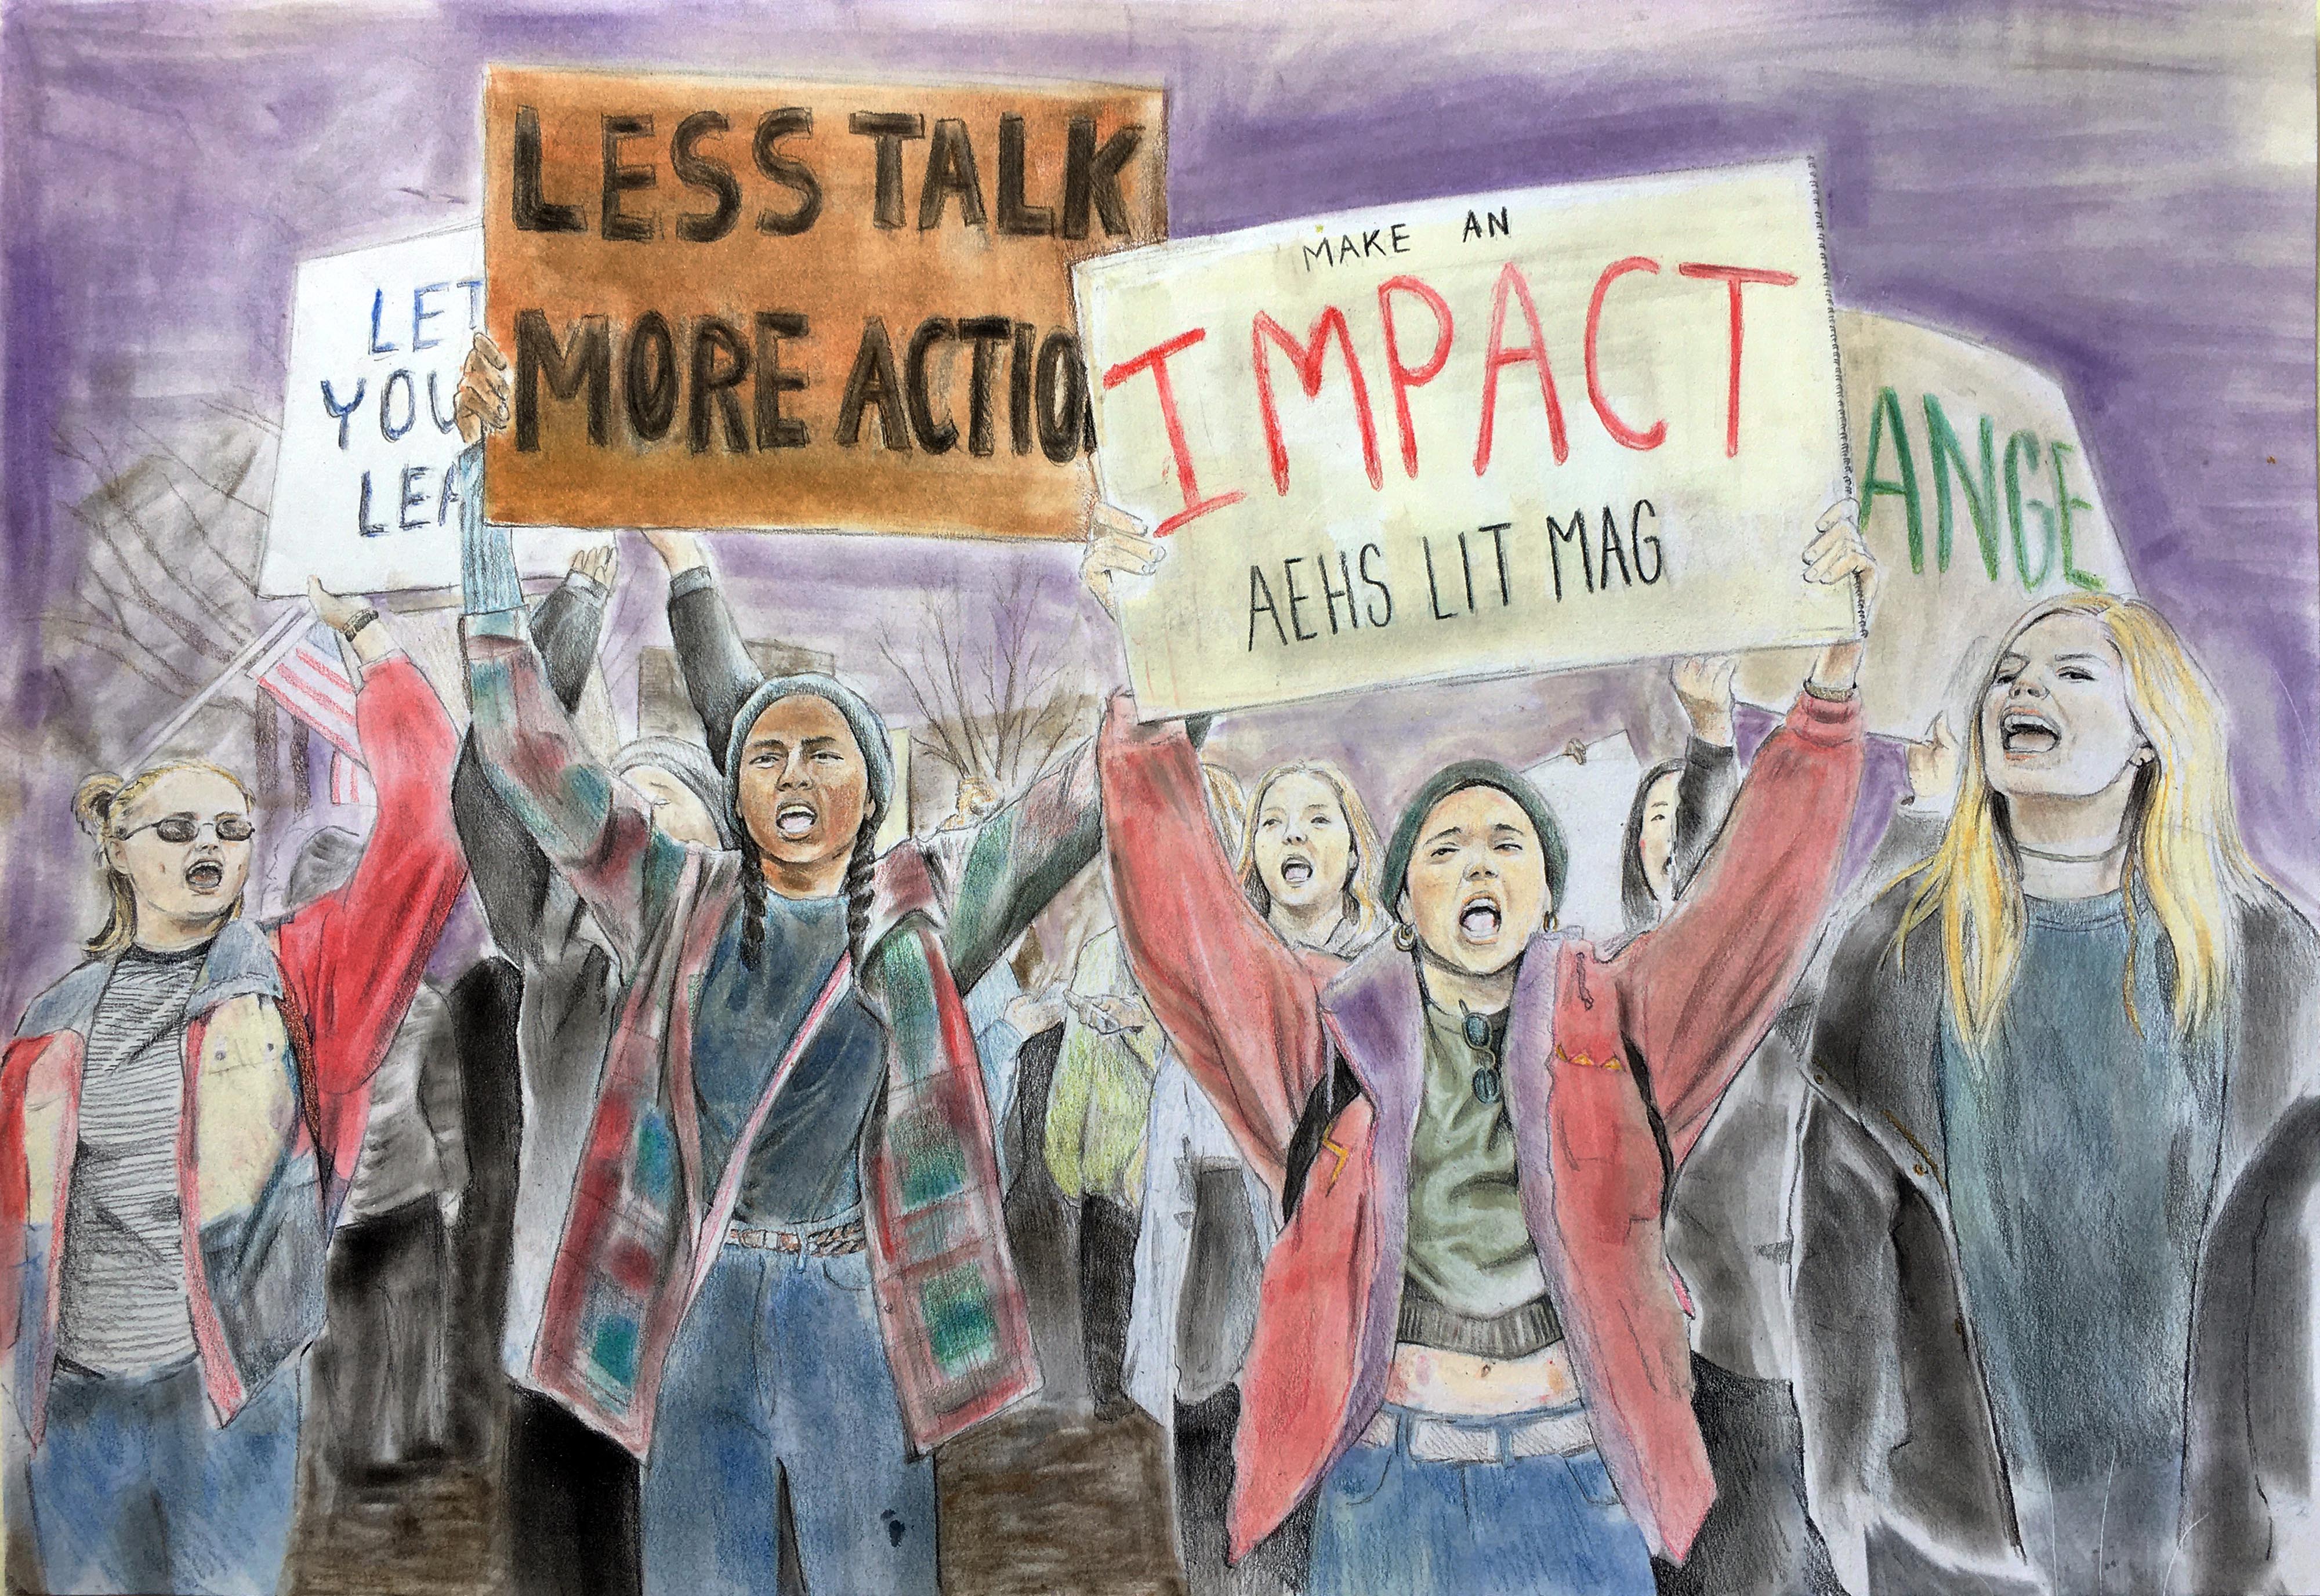 LET
YOU
LEA
LESS TALK
MORE ACTIO
MAKE AN
IMPACT
AEHS LIT MAG
ANGE